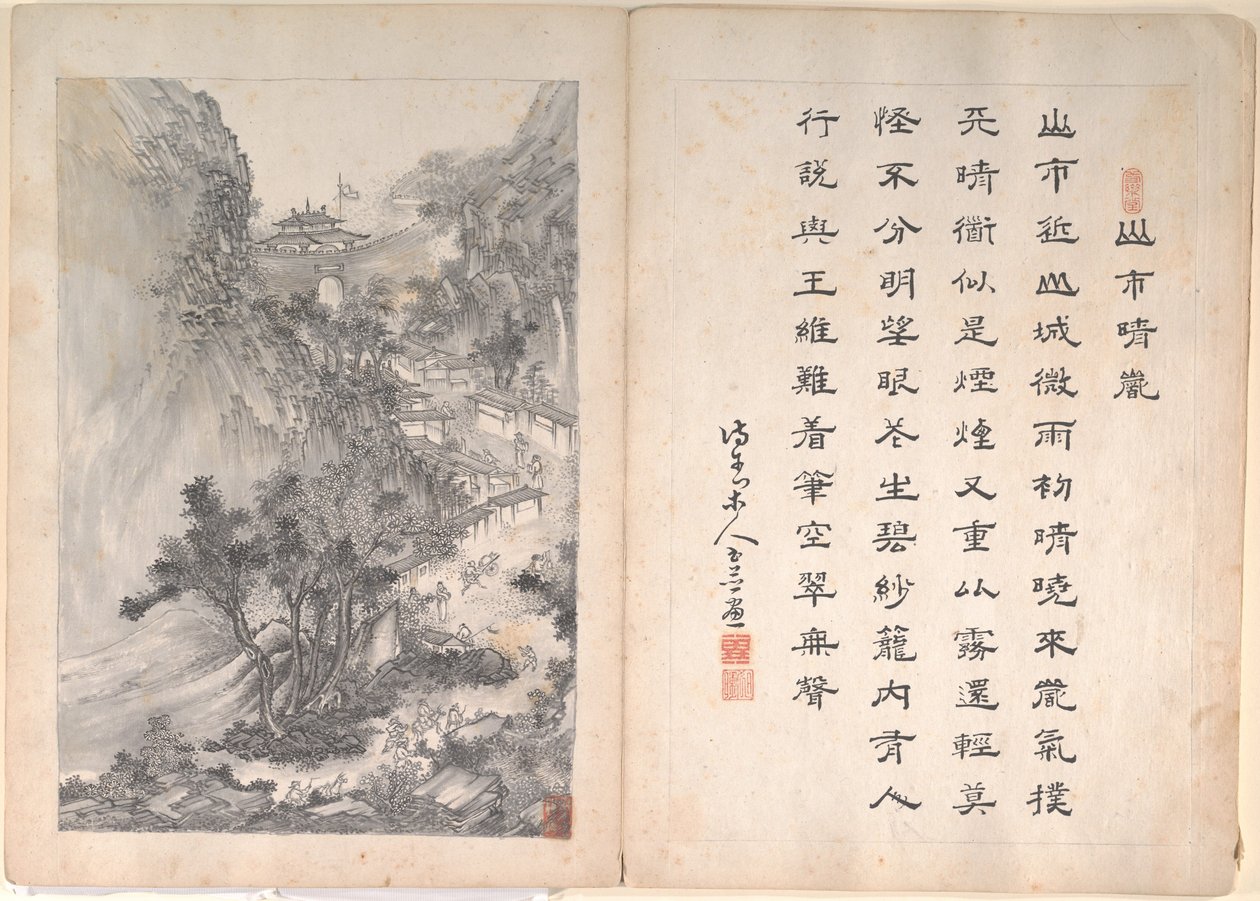 山市晴嵐
山市近山城微雨初晴曉來嵐氣撲
天晴衜似是煙煙又重以霧還輕莫
怪不分明望眼花生碧紗籠內有人
行說與王維難着筆空翠無聲
人 畫